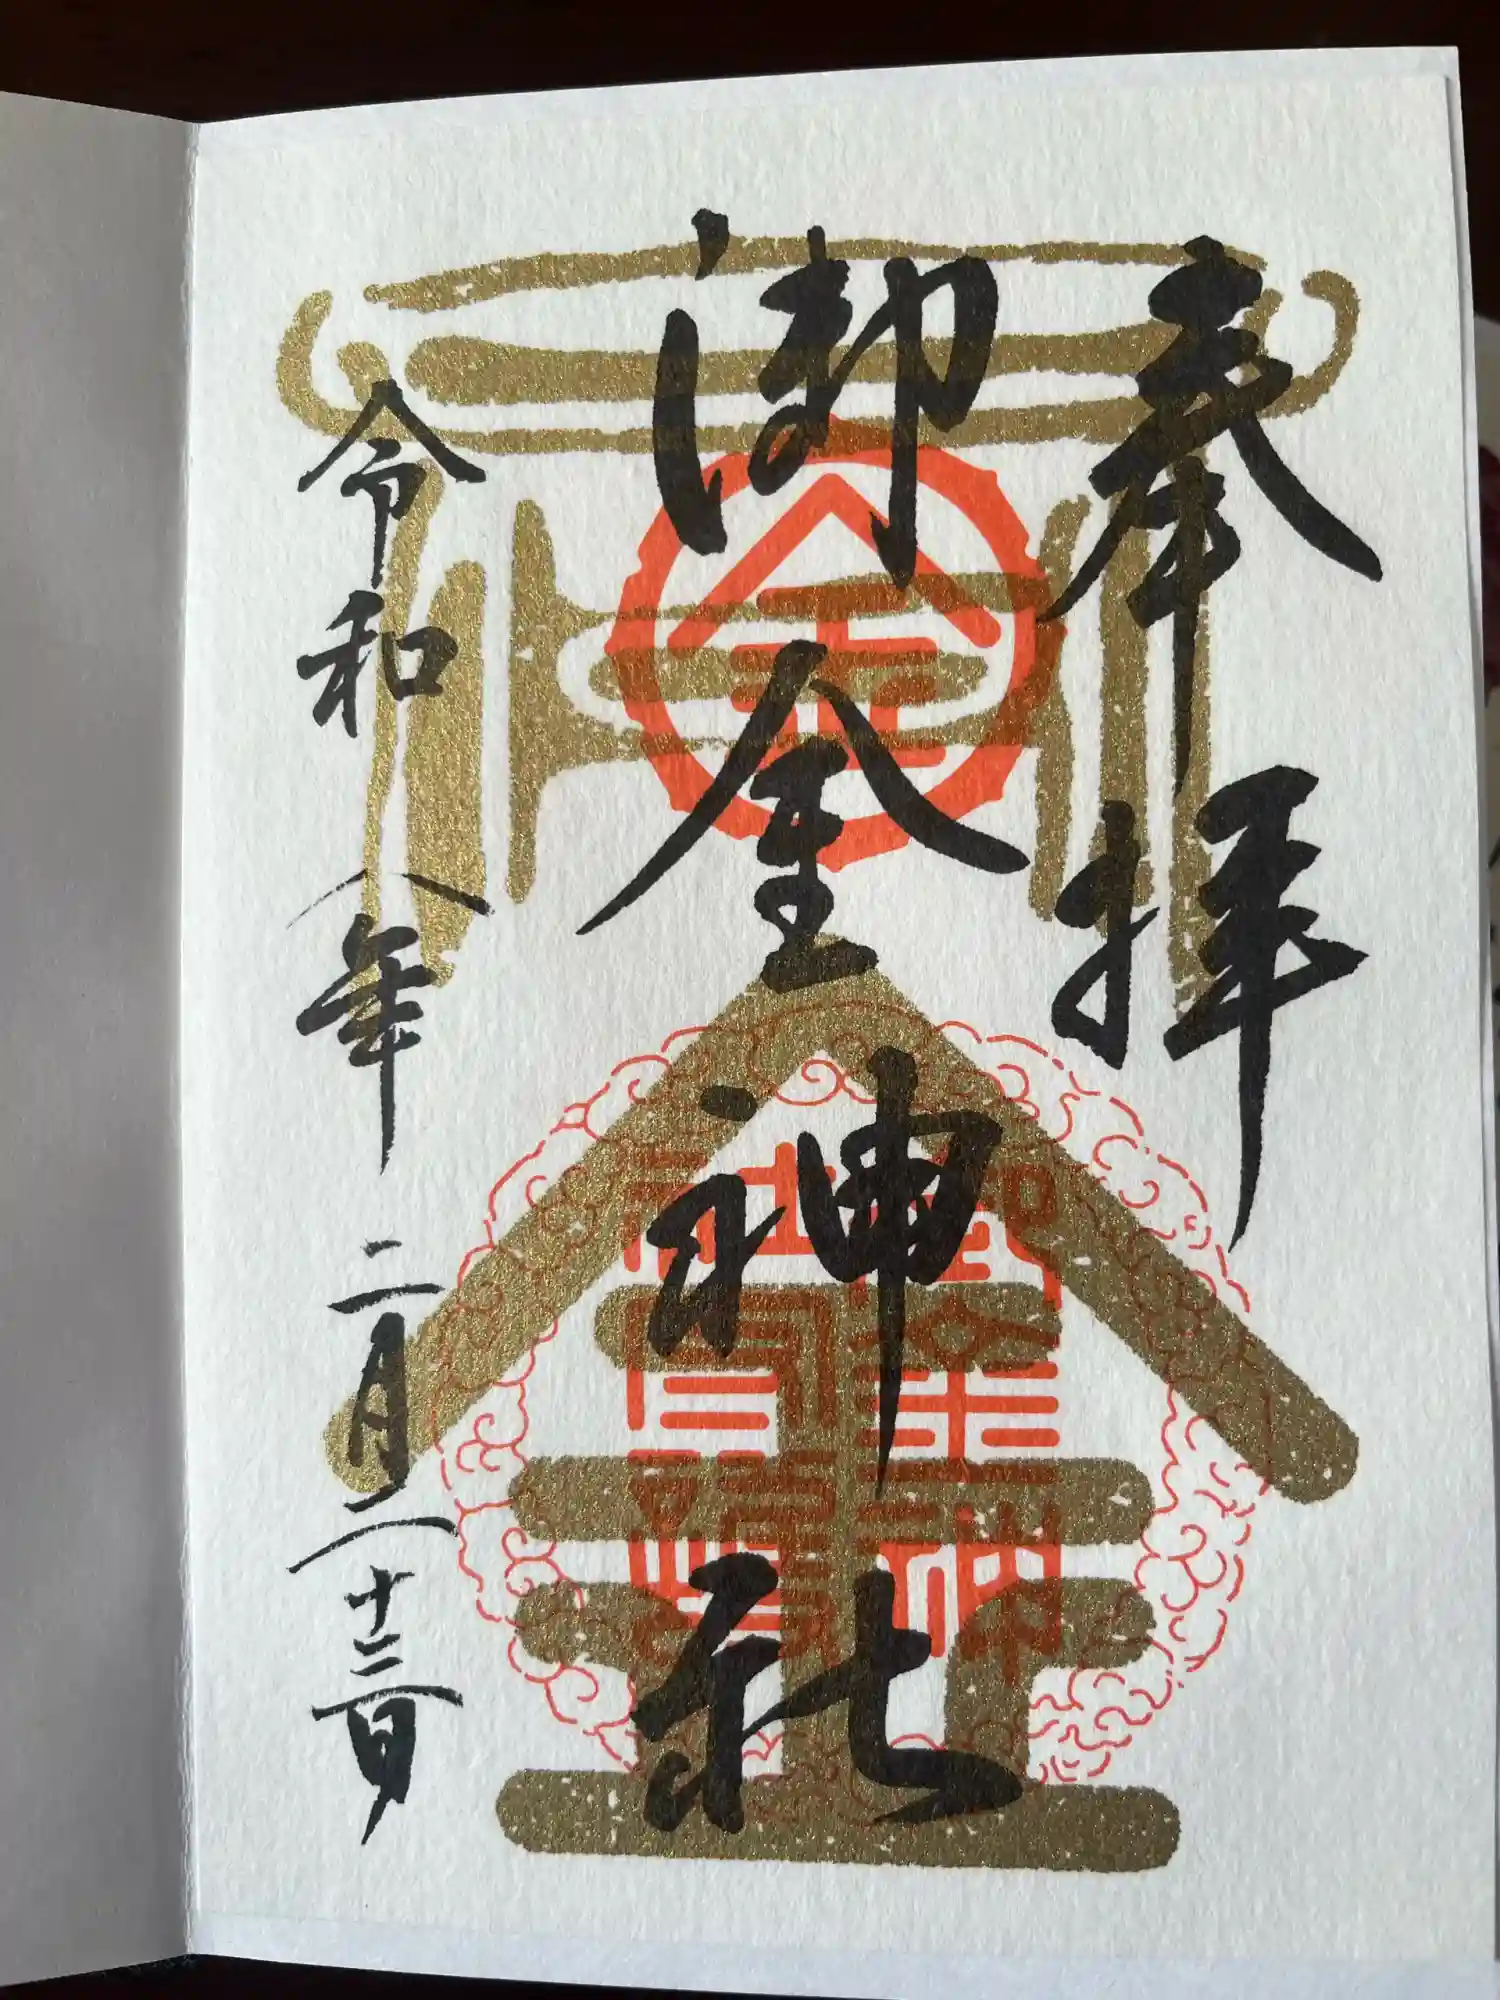 奉拝
御金神社
令和八年二月二十二日
金
御金神社之印